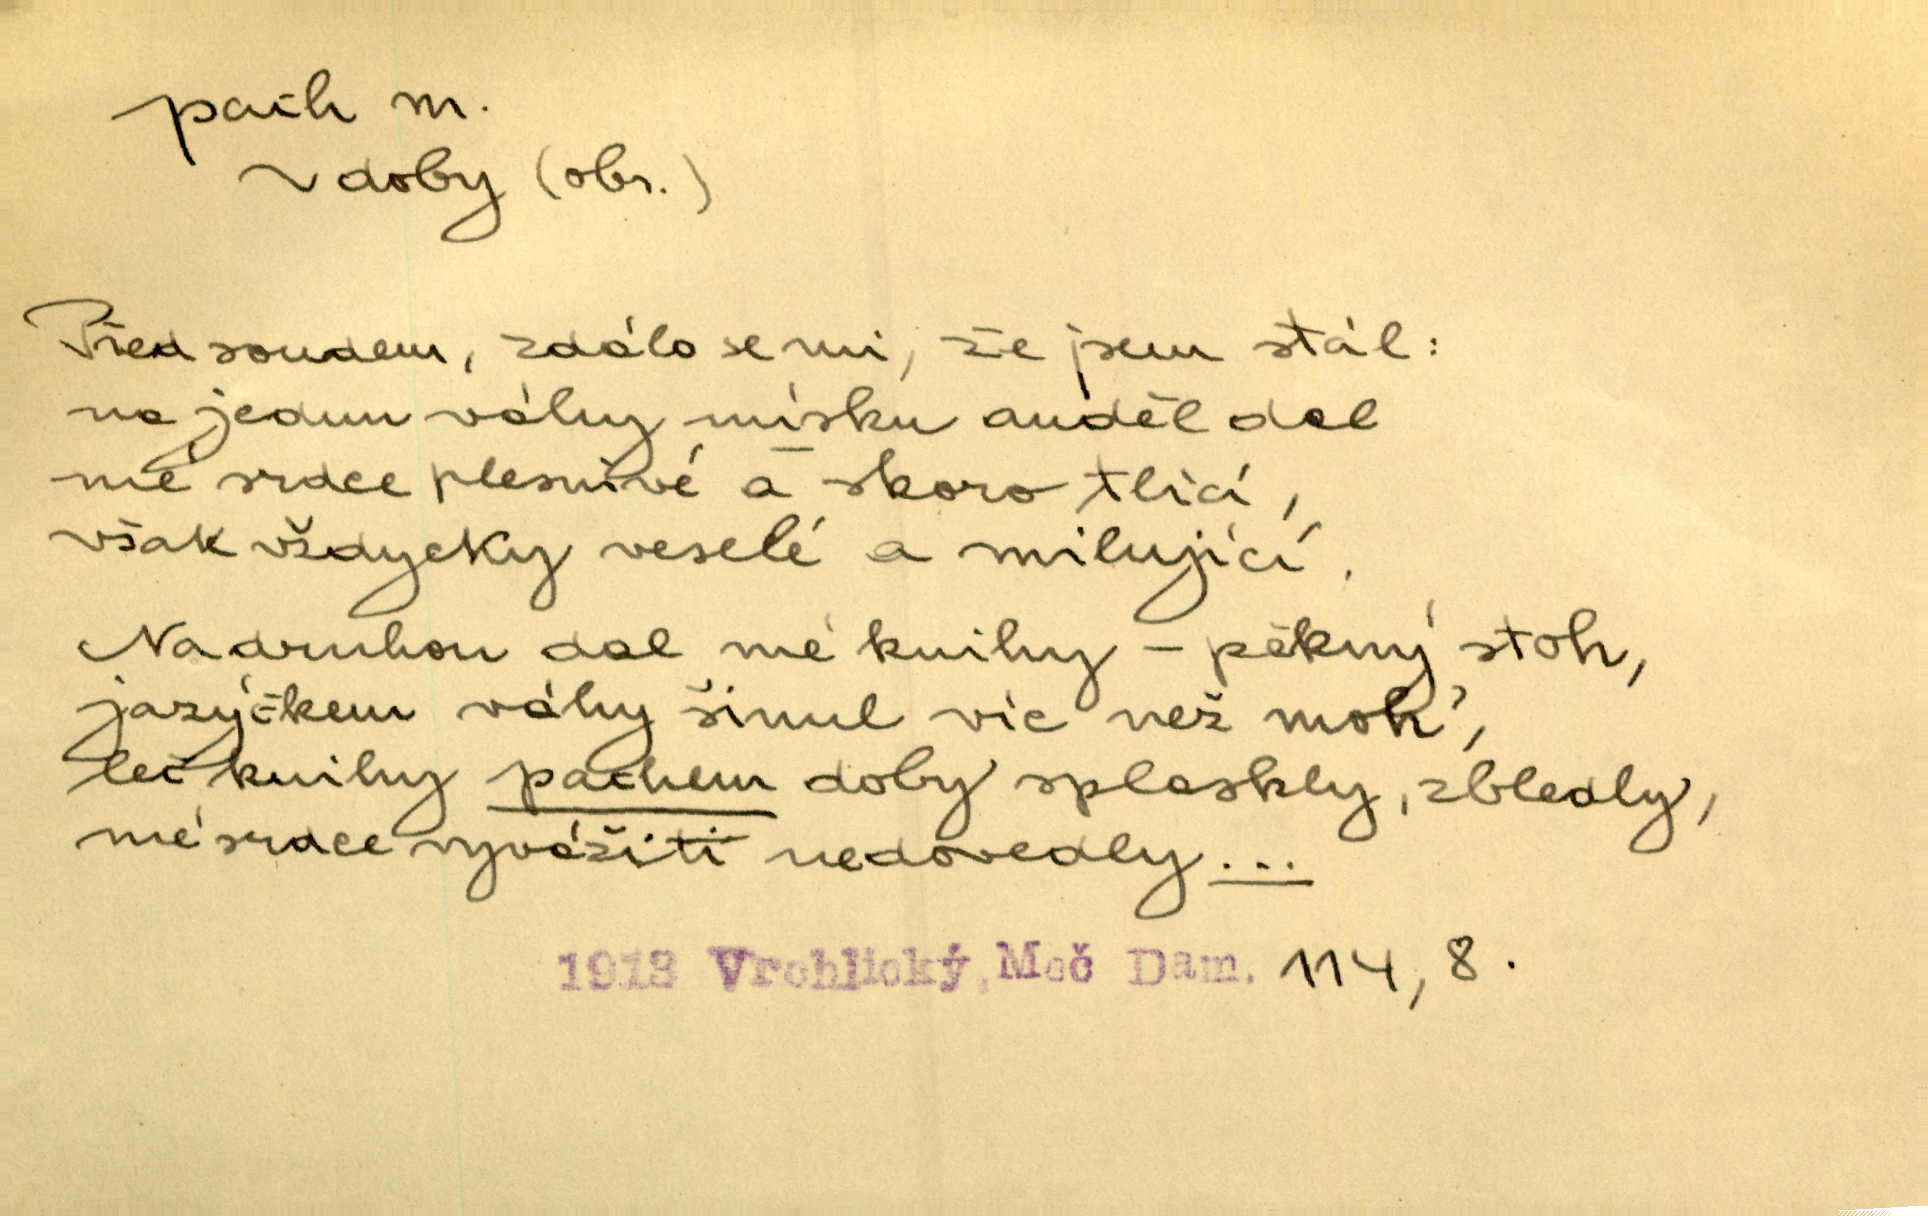 pach m.
~ doby (obr.)
Před soudem, zdálo se mi, že jsem stál:
na jednu váhy misku anděl dal
mé srdce plesnivé a skoro tlící,
však vždycky veselé a milující.
Na druhou dal mé knihy – pěkný stoh,
jazýčkem váhy šinul víc než moh',
leč knihy pachem doby splaskly, zbledly,
mé srdce vyvážiti nedovedly ...
1913 Vrchlický, Meč Dam. 114, 8.